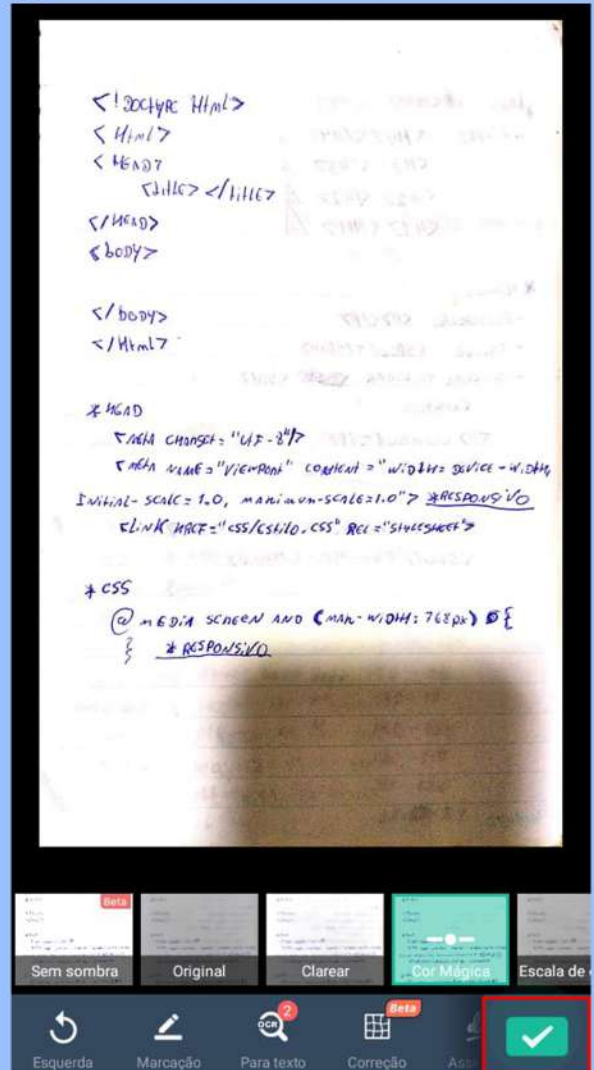 <!DOCTYPE Html>
<Html>
<HEAD>
<title></title>
</HEAD>
<body>
</body>
</Html>
* HEAD
<meta charset="UTF-8"/>
<meta name="viewport" content="width=device-width,
Initial-scale=1.0, maximum-scale=1.0"> *RESPONSIVO
<Link href="css/estilo.css" Rel="stylesheet">
* CSS
@media screen and (max-width: 768px) {
} * RESPONSIVO
Beta
Sem sombra Original Clarear Cor Mágica Escala de
OCR 2 Beta
Esquerda Marcação Para texto Correção Ass